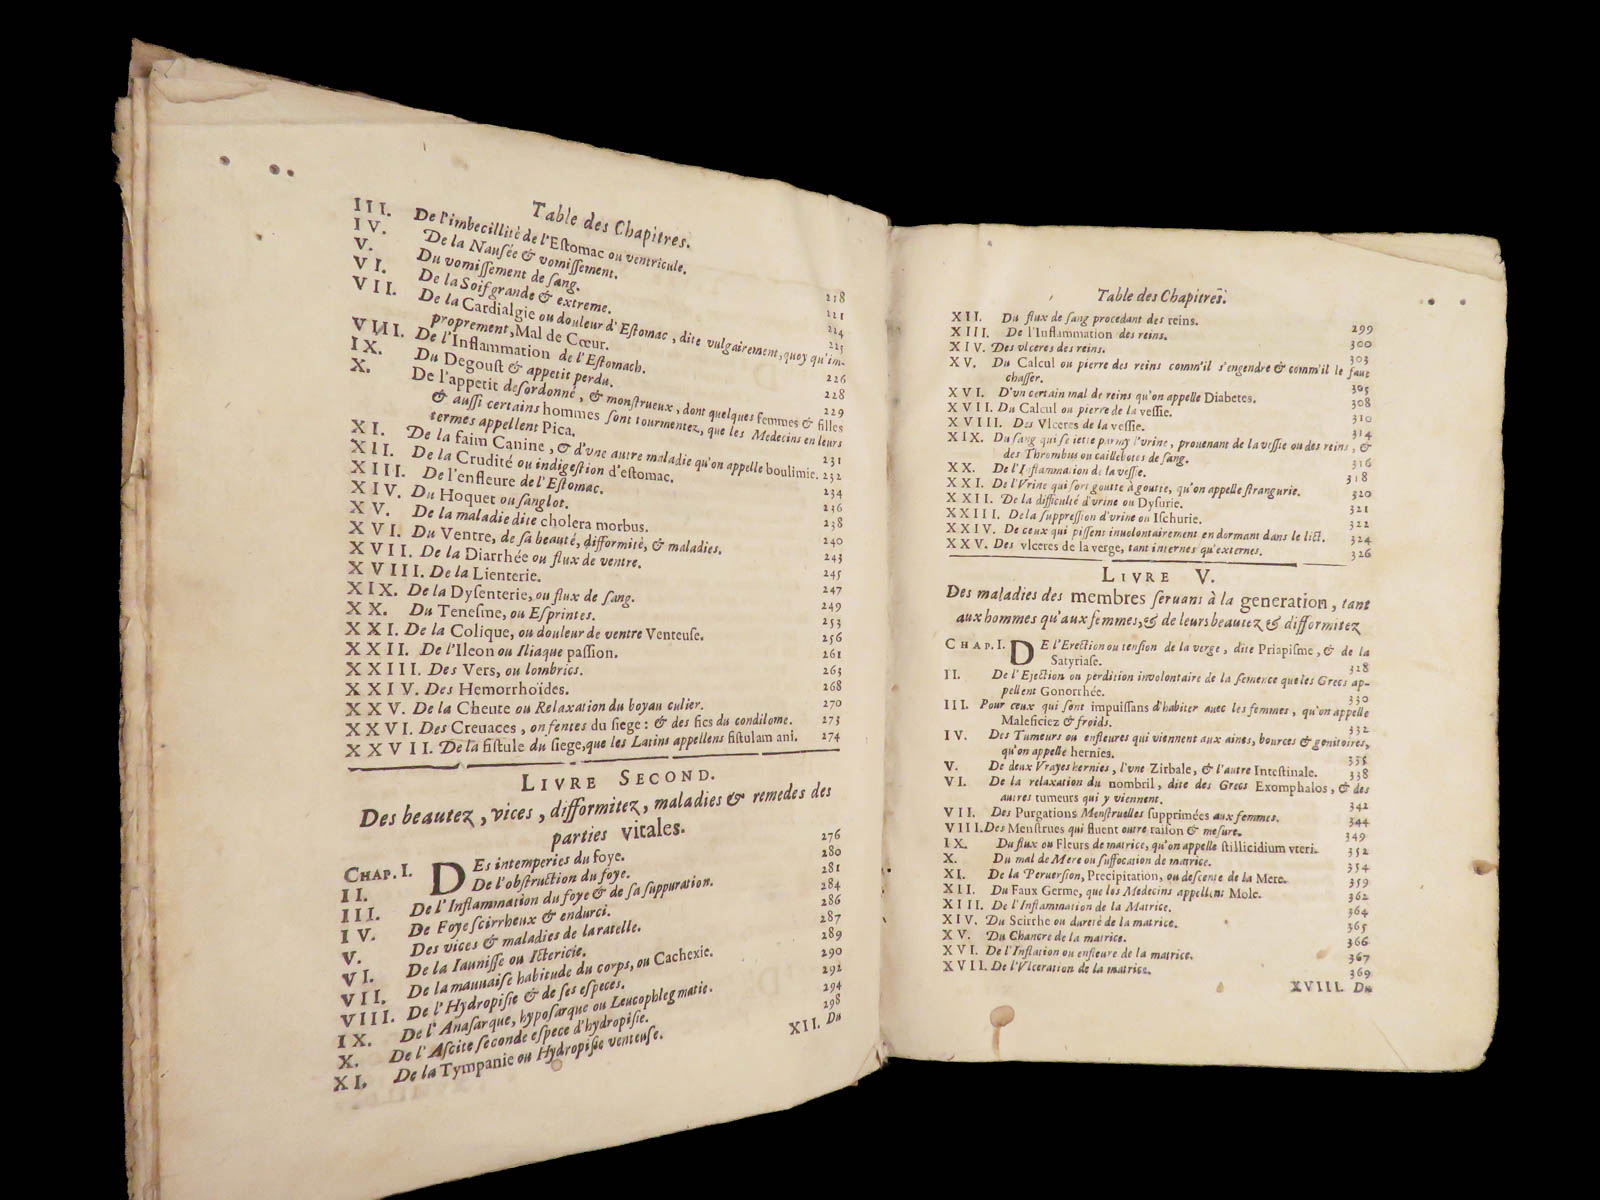 Table des Chapitres.
III. De l'imbecillité de l'Estomac ou ventricule. 218
IV. De la Nausée & vomissement. 221
V. Du vomissement de sang. 224
VI. De la Soif grande & extreme. 225
VII. De la Cardialgie ou douleur d'Estomac, dite vulgairement, quoy qu'im-
proprement, Mal de Cœur. 226
VIII. De l'Inflammation de l'Estomach. 228
IX. Du Degoust & appetit perdu. 229
X. De l'appetit desordonné, & monstrueux, dont quelques femmes & filles
& aussi certains hommes sont tourmentez, que les Medecins en leurs
termes appellent Pica. 231
XI. De la faim Canine, & d'vne autre maladie qu'on appelle boulimie. 232
XII. De la Crudité ou indigestion d'estomac. 234
XIII. De l'enfleure de l'Estomac. 236
XIV. Du Hoquet ou sanglot. 238
XV. De la maladie dite cholera morbus. 240
XVI. Du Ventre, de sa beauté, difformité, & maladies. 243
XVII. De la Diarrhée ou flux de ventre. 245
XVIII. De la Lienterie. 247
XIX. De la Dysenterie, ou flux de sang. 249
XX. Du Tenesme, ou Esprintes. 253
XXI. De la Colique, ou douleur de ventre Venteuse. 256
XXII. De l'Ileon ou Iliaque passion. 261
XXIII. Des Vers, ou lombrics. 263
XXIV. Des Hemorrhoïdes. 268
XXV. De la Cheute ou Relaxation du boyau culier. 270
XXVI. Des Creuaces, on fentes du siege: & des fics du condilome. 273
XXVII. De la fistule du siege, que les Latins appellens fistulam ani. 274
LIVRE SECOND.
Des beautez, vices, difformitez, maladies & remedes des
parties vitales.
CHAP. I. DEs intemperies du foye. 276
II. De l'obstruction du foye. 280
III. De l'Inflammation du foye & de sa suppuration. 281
IV. De Foye scirrheux & endurci. 284
V. Des vices & maladies de la ratelle. 286
VI. De la Iaunisse ou Ictericie. 287
VII. De la mauuaise habitude du corps, ou Cachexie. 289
VIII. De l'Hydropisie & de ses especes. 290
IX. De l'Anasarque, hyposarque ou Leucophlegmatie. 292
X. De l'Ascite seconde espece d'hydropisie. 294
XI. De la Tympanie ou Hydropisie venteuse. 298
XII. Du
Table des Chapitres.
XII. Du flux de sang procedant des reins. 299
XIII. De l'Inflammation des reins. 300
XIV. Des vlceres des reins. 303
XV. Du Calcul ou pierre des reins comm'il s'engendre & comm'il le faut
chasser. 305
XVI. D'vn certain mal de reins qu'on appelle Diabetes. 308
XVII. Du Calcul ou pierre de la vessie. 310
XVIII. Des Vlceres de la vessie. 314
XIX. Du sang qui se iette parmy l'vrine, prouenant de la vessie ou des reins, &
des Thrombus ou caillebotes de sang. 316
XX. De l'Inflammation de la vessie. 318
XXI. De l'Vrine qui sort goutte à goutte, qu'on appelle strangurie. 320
XXII. De la difficulté d'vrine ou Dysurie. 321
XXIII. De la suppression d'vrine ou Ischurie. 322
XXIV. De ceux qui pissent inuolontairement en dormant dans le lict. 324
XXV. Des vlceres de la verge, tant internes qu'externes. 326
LIVRE V.
Des maladies des membres seruans à la generation, tant
aux hommes qu'aux femmes, & de leurs beautez & difformitez
CHAP. I. DE l'Erection ou tension de la verge, dite Priapisme, & de la
Satyriase. 328
II. De l'Ejection ou perdition involontaire de la semence que les Grecs ap-
pellent Gonorrhée. 330
III. Pour ceux qui sont impuissans d'habiter auec les femmes, qu'on appelle
Maleficiez & froids. 332
IV. Des Tumeurs ou enfleures qui viennent aux aines, bources & genitoires,
qu'on appelle hernies. 335
V. De deux Vrayes hernies, l'vne Zirbale, & l'autre Intestinale. 338
VI. De la relaxation du nombril, dite des Grecs Exomphalos, & des
autres tumeurs qui y viennent. 342
VII. Des Purgations Menstruelles supprimées aux femmes. 344
VIII. Des Menstrues qui fluent outre raison & mesure. 349
IX. Du flux ou Fleurs de matrice, qu'on appelle stillicidium vteri. 352
X. Du mal de Mere ou suffocation de matrice. 354
XI. De la Peruersion, Precipitation, ou descente de la Mere. 359
XII. Du Faux Germe, que les Medecins appellent Mole. 362
XIII. De l'Inflammation de la Matrice. 364
XIV. Du Scirrhe ou dureté de la matrice. 365
XV. Du Chancre de la matrice. 366
XVI. De l'Inflation ou enfleure de la matrice. 367
XVII. De l'Vlceration de la matrice. 369
XVIII. Du